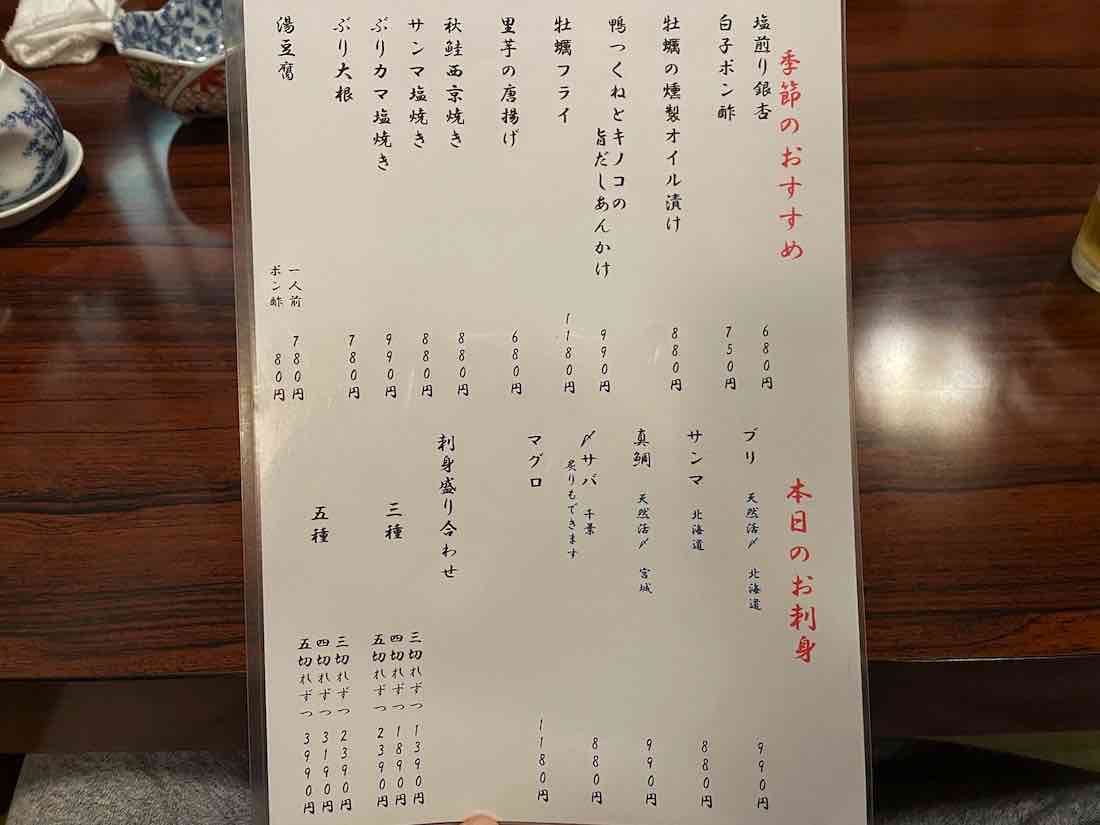 季節のおすすめ
塩煎り銀杏 680円
白子ポン酢 750円
牡蠣の燻製オイル漬け 880円
鴨つくねとキノコの
旨だしあんかけ 990円
牡蠣フライ 1180円
里芋の唐揚げ 680円
秋鮭西京焼き 880円
サンマ塩焼き 880円
ぶりカマ塩焼き 990円
ぶり大根 780円
湯豆腐 一人前 780円
ポン酢 80円
本日のお刺身
ブリ 天然活〆 北海道 990円
サンマ 北海道 880円
真鯛 天然活〆 宮城 990円
〆サバ 千葉 880円
炙りもできます
マグロ 1180円
刺身盛り合わせ
三種 三切れずつ 1390円
四切れずつ 1890円
五切れずつ 2390円
五種 三切れずつ 2390円
四切れずつ 3190円
五切れずつ 3990円